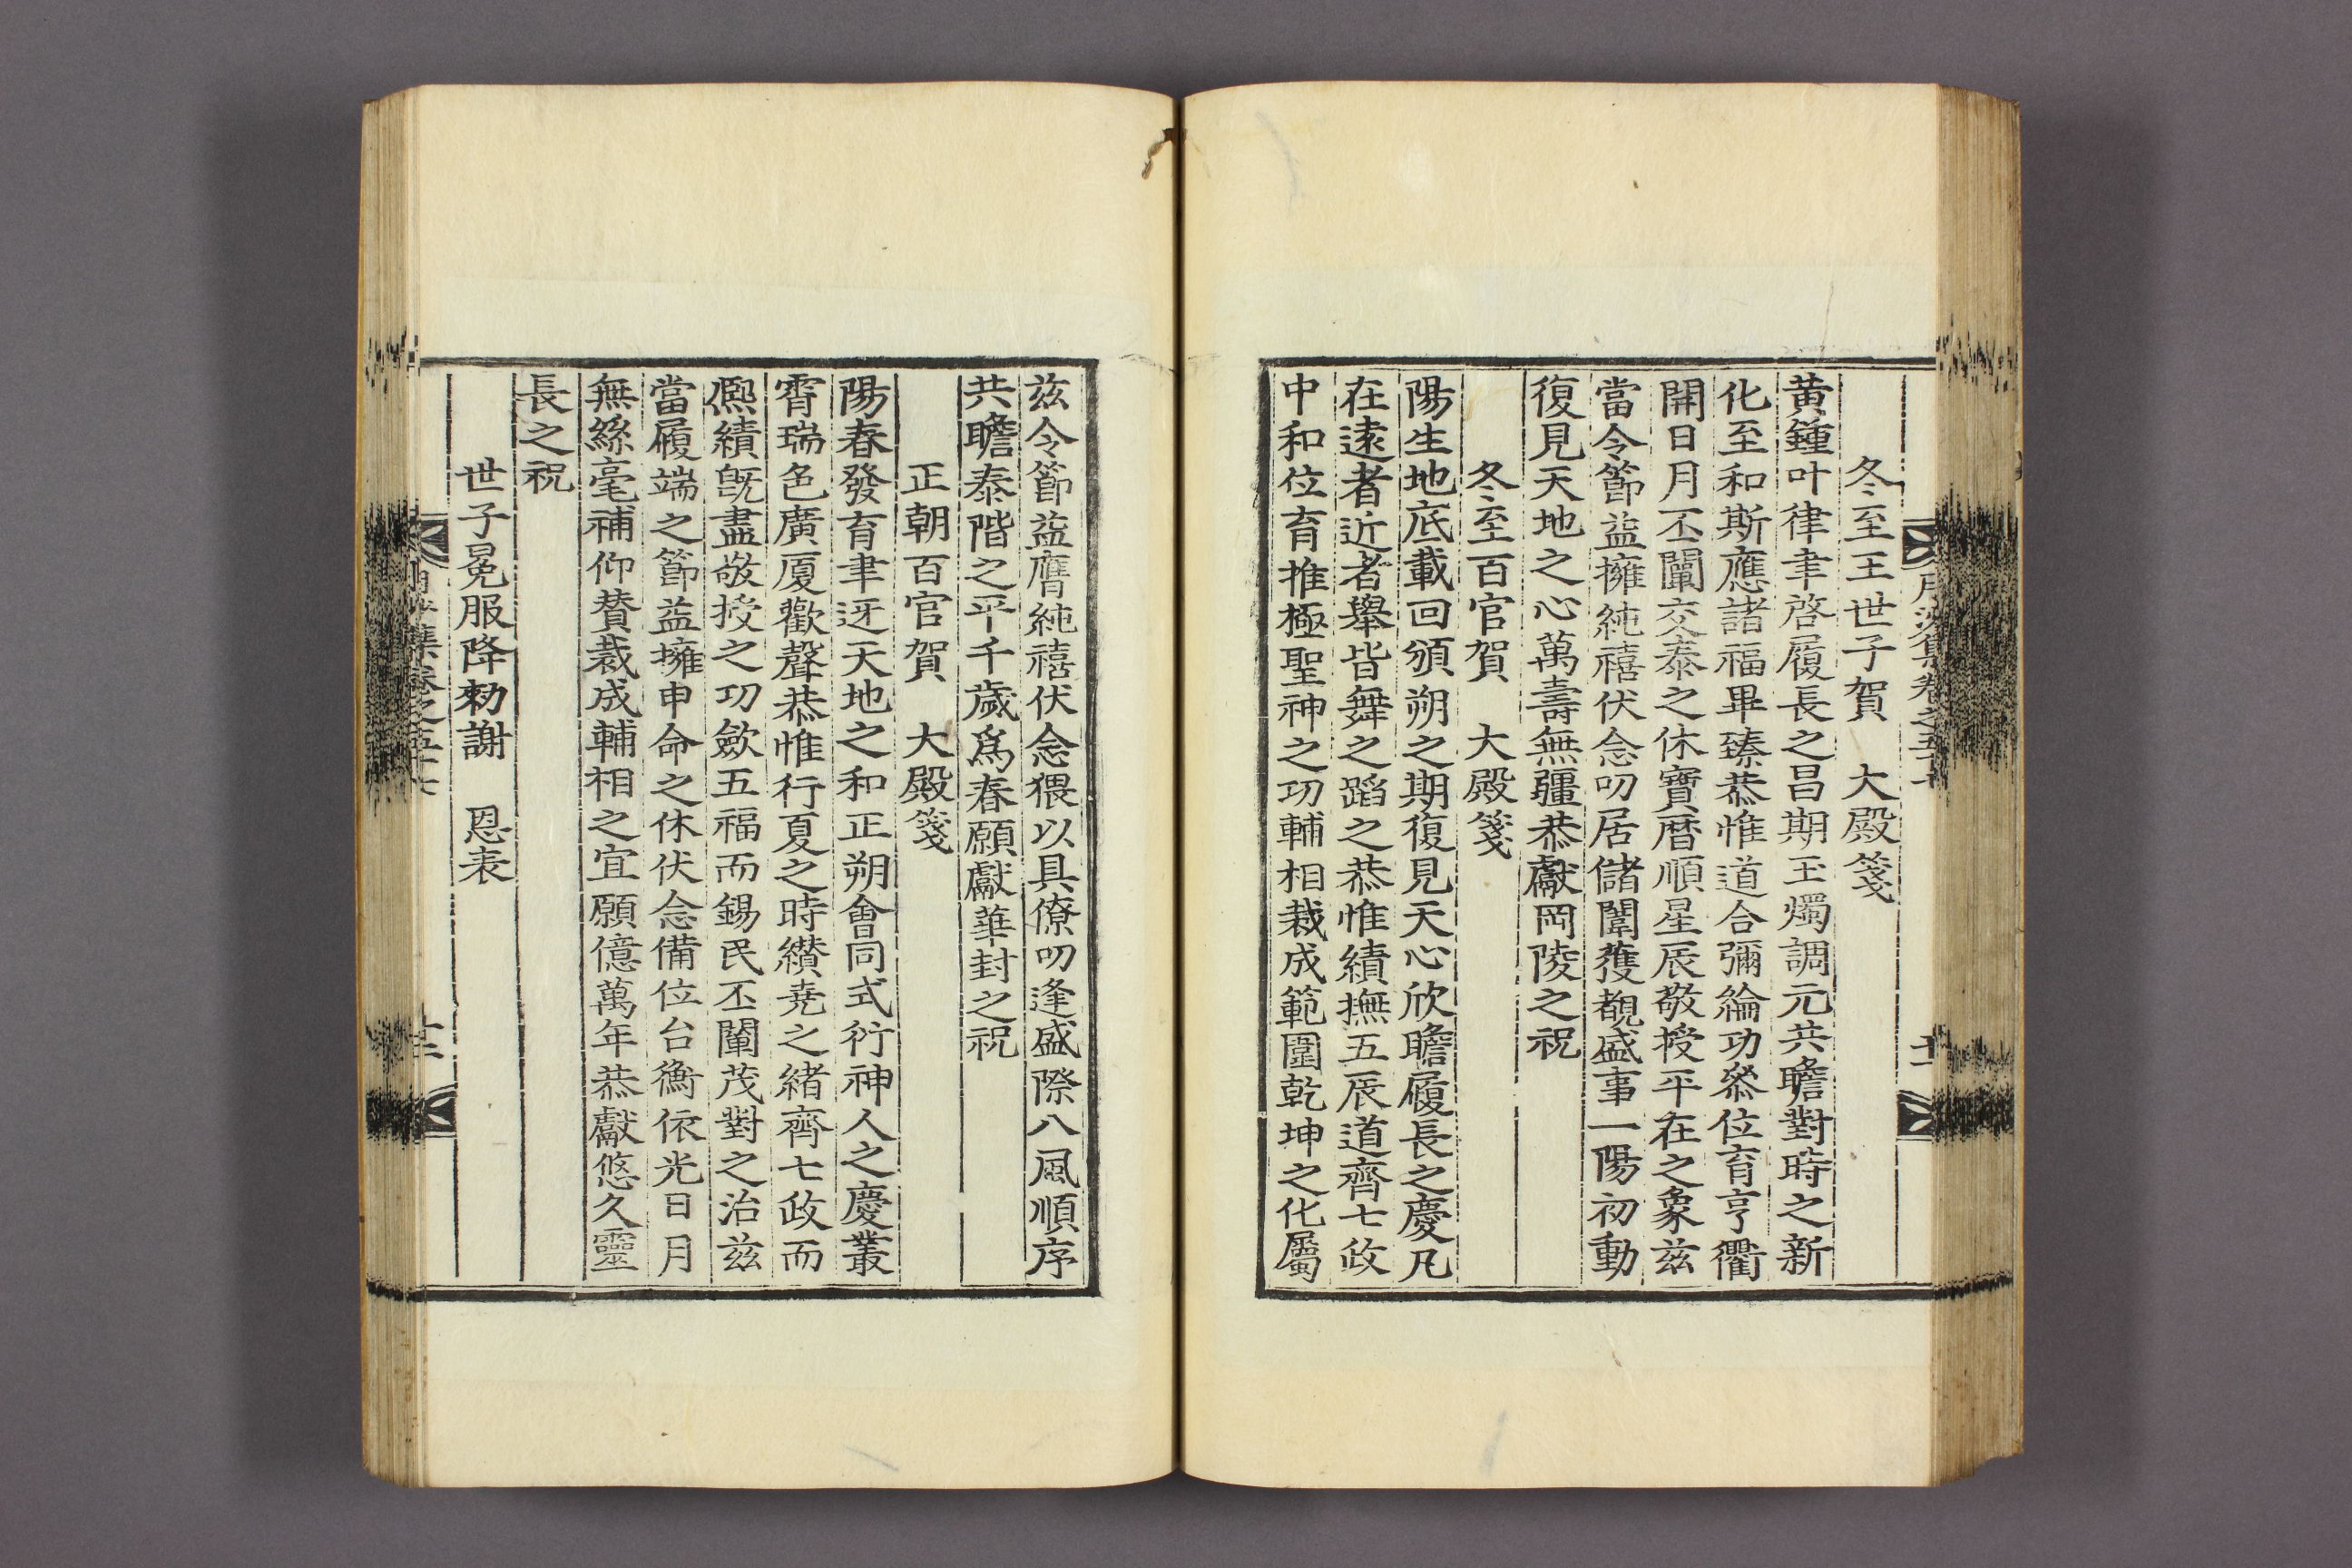 冬至王世子賀　大殿箋
黃鍾叶律聿啓履長之昌期玉燭調元共瞻對時之新
化至和斯應諸福畢臻恭惟道合彌綸功叅位育亨衢
開日月丕闡交泰之休寶曆順星辰敬授平在之象玆
當令節益擁純禧伏念叨居儲闈獲覩盛事一陽初動
復見天地之心萬壽無疆恭獻岡陵之祝
冬至百官賀　大殿箋
陽生地底載回頒朔之期復見天心欣瞻履長之慶凡
在逺者近者擧皆舞之蹈之恭惟績撫五辰道齊七政
中和位育推極聖神之功輔相裁成範圍乾坤之化屬
玆令節益膺純禧伏念猥以具僚叨逢盛際八風順序
共瞻泰階之平千歲爲春願獻華封之祝
正朝百官賀　大殿箋
陽春發育聿迓天地之和正朔會同式衍神人之慶叢
霄瑞色廣厦歡聲恭惟行夏之時纘堯之緖齊七政而
熙績旣盡敬授之功歛五福而錫民丕闡茂對之治玆
當履端之節益擁申命之休伏念備位台衡依光日月
無絲毫補仰贊裁成輔相之宜願億萬年恭獻悠久靈
長之祝
世子冕服降勑謝　恩表
月沙集卷之五十七